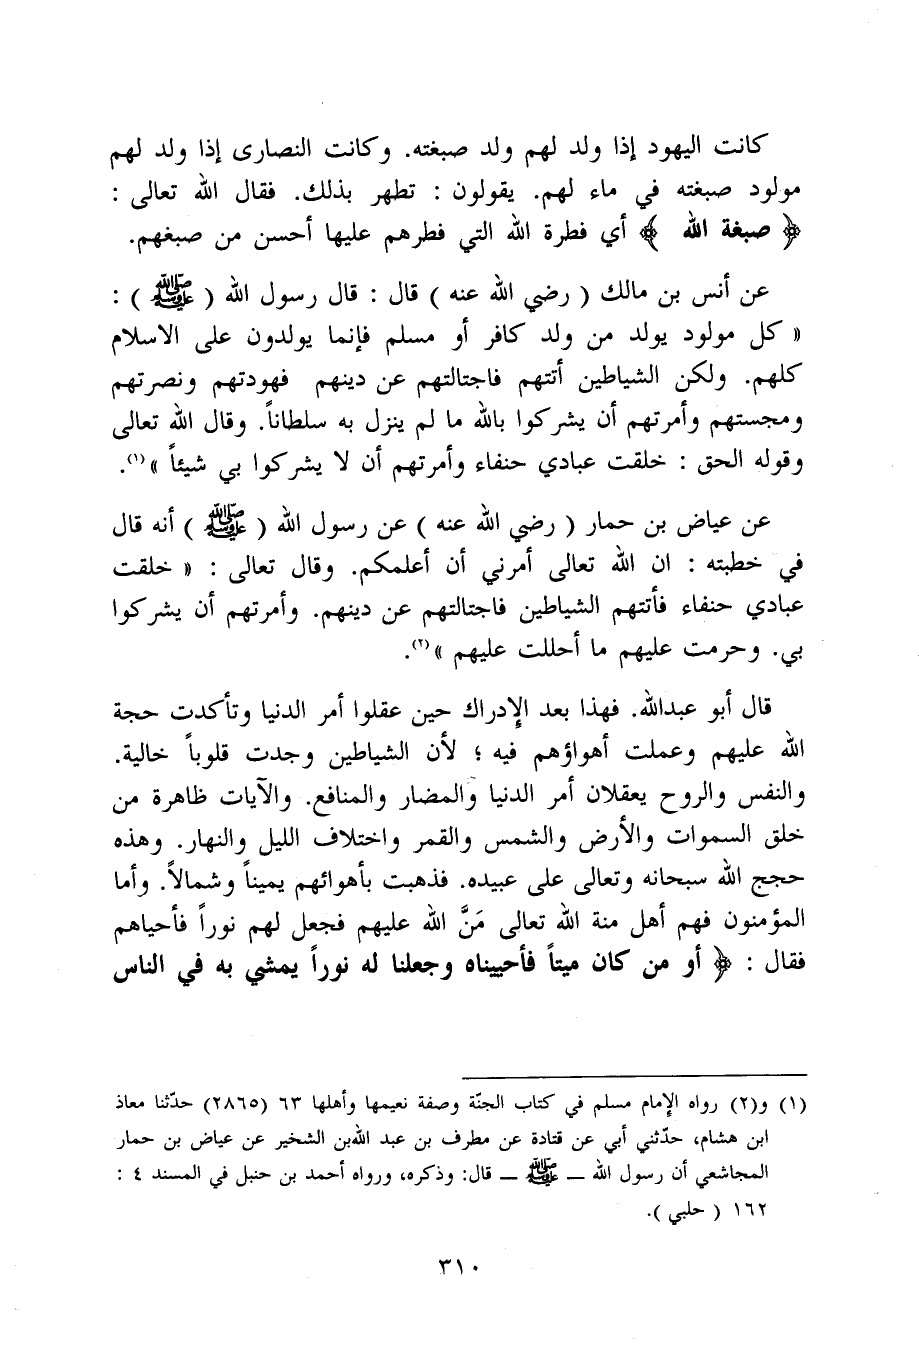 كانت اليهود إذا ولد لهم ولد صبغته. وكانت النصارى إذا ولد لهم
مولود صبغته في ماء لهم. يقولون : تطهر بذلك. فقال الله تعالى :
﴿ صبغة الله ﴾ أي فطرة الله التي فطرهم عليها أحسن من صبغهم.
عن أنس بن مالك ( رضي الله عنه ) قال : قال رسول الله ( ﷺ ) :
« كل مولود يولد من ولد كافر أو مسلم فإنما يولدون على الاسلام
كلهم. ولكن الشياطين أتتهم فاجتالتهم عن دينهم فهودتهم ونصرتهم
ومجستهم وأمرتهم أن يشركوا بالله ما لم ينزل به سلطاناً. وقال الله تعالى
وقوله الحق : خلقت عبادي حنفاء وأمرتهم أن لا يشركوا بي شيئاً »(١).
عن عياض بن حمار ( رضي الله عنه ) عن رسول الله ( ﷺ ) أنه قال
في خطبته : ان الله تعالى أمرني أن أعلمكم. وقال تعالى : « خلقت
عبادي حنفاء فأتتهم الشياطين فاجتالتهم عن دينهم. وأمرتهم أن يشركوا
بي. وحرمت عليهم ما أحللت عليهم »(٢).
قال أبو عبدالله. فهذا بعد الإدراك حين عقلوا أمر الدنيا وتأكدت حجة
الله عليهم وعملت أهواؤهم فيه ؛ لأن الشياطين وجدت قلوباً خالية.
والنفس والروح يعقلان أمر الدنيا والمضار والمنافع. والآيات ظاهرة من
خلق السموات والأرض والشمس والقمر واختلاف الليل والنهار. وهذه
حجج الله سبحانه وتعالى على عبيده. فذهبت بأهوائهم يميناً وشمالاً. وأما
المؤمنون فهم أهل منة الله تعالى مَنَّ الله عليهم فجعل لهم نوراً فأحياهم
فقال : ﴿ أو من كان ميتاً فأحييناه وجعلنا له نوراً يمشي به في الناس
(١) و(٢) رواه الإمام مسلم في كتاب الجنّة وصفة نعيمها وأهلها ٦٣ (٢٨٦٥) حدّثنا معاذ
ابن هشام، حدّثني أبي عن قتادة عن مطرف بن عبد اللهبن الشخير عن عياض بن حمار
المجاشعي أن رسول الله ــ ﷺ ــ قال: وذكره، ورواه أحمد بن حنبل في المسند ٤ :
١٦٢ ( حلبي ).
٣١٠